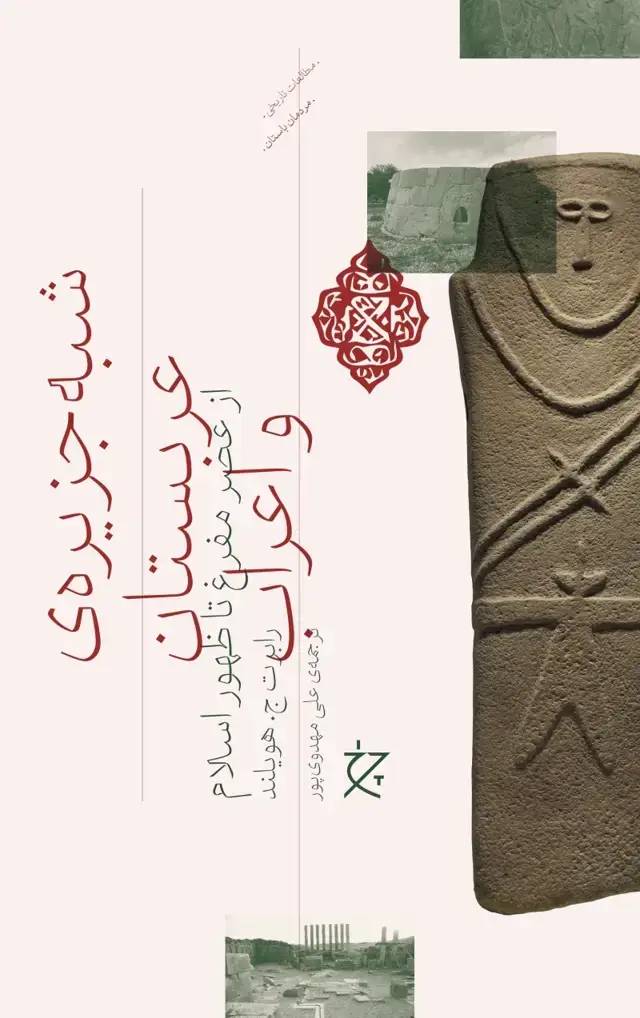 .مطالعات تاریخی.
.مردمان باستان.
شبه جزیره‌ی
عربستان
و اعراب
از عصر مفرغ تا ظهور اسلام
رابرت ج. هویلند
ترجمه‌ی علی مهدوی‌پور